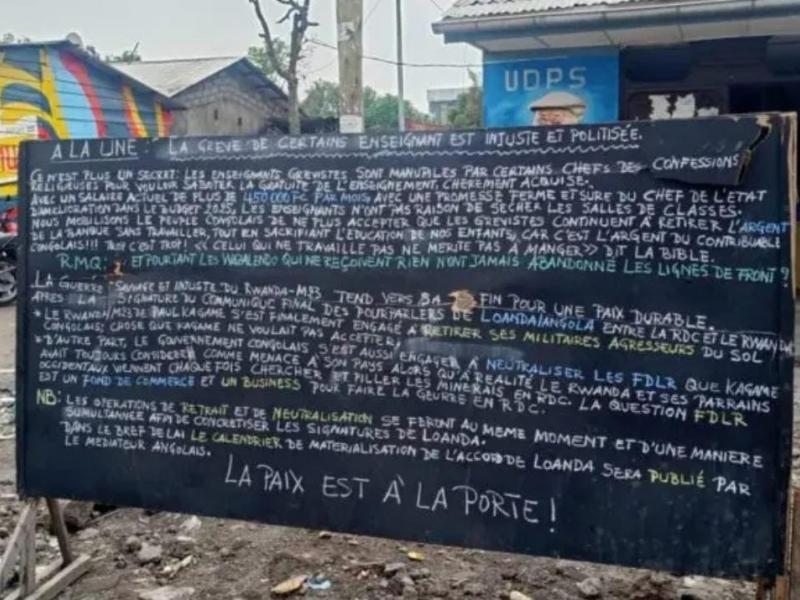 UDPS
A LA UNE : LA GREVE DE CERTAINS ENSEIGNANT EST INJUSTE ET POLITISÉE.
CE N'EST PLUS UN SECRET: LES ENSEIGNANTS GREVISTES SONT MANUPILES PAR CERTAINS CHEFS DES CONFESSIONS
RELIGIEUSES POUR VOULOIR SABOTER LA GRATUITE DE L'ENSEIGNEMENT, CHEREMENT ACQUISE.
AVEC UN SALAIRE ACTUEL DE PLUS DE 450 000 FC PAR MOIS AVEC UNE PROMESSE FERME ET SURE DU CHEF DE L'ETAT
D'AMELIORATION DANS LE BUDGET 2025, LES ENSEIGNANTS N'ONT PAS RAISON DE SECHER LES SALLES DE CLASSES.
NOUS MOBILISONS LE PEUPLE CONGOLAIS A NE PLUS ACCEPTER QUE LES GREVISTES CONTINUENT À RETIRER L'ARGENT
A LA BANQUE SANS TRAVAILLER, TOUT EN SACRIFIANT L'ÉDUCATION DE NOS ENFANTS, CAR C'EST L'ARGENT DU CONTRIBUABLE
CONGOLAIS!!! TROP C'EST TROP! << CELUI QUI NE TRAVAILLE PAS NE MERITE PAS A MANGER>> DIT LA BIBLE.
RMQ: ET POURTANT LES WAZALENDO QUI NE REÇOIVENT RIEN N'ONT JAMAIS ABANDONNÉ LES LIGNES DE FRONT ?
LA GUERRE SAUVAGE ET INJUSTE DU RWANDA-M23 TEND VERS SA FIN POUR UNE PAIX DURABLE.
APRES LA SIGNATURE DU COMMUNIQUE FINAL DES POURPARLERS DE LOANDA/ANGOLA ENTRE LA RDC ET LE RWANDA
* LE RWANDA/M23 DE PAUL KAGAME S'EST FINALEMENT ENGAGÉ A RETIRER SES MILITAIRES AGRESSEURS DU SOL
CONGOLAIS; CHOSE QUE KAGAME NE VOULAIT PAS ACCEPTER.
* D'AUTRE PART, LE GOUVERNEMENT CONGOLAIS S'EST AUSSI ENGAGER A NEUTRALISER LES FDLR QUE KAGAME
AVAIT TOUJOURS CONSIDERER COMME MENACE À SON PAYS ALORS QU'A REALITÉ LE RWANDA ET SES PARRAINS
OCCIDENTAUX VIENNENT CHAQUE FOIS CHERCHER ET PILLER LES MINERAIS EN RDC. LA QUESTION FDLR
EST UN FOND DE COMMERCE ET UN BUSINESS POUR FAIRE LA GEURRE EN RDC.
NB: LES OPERATIONS DE RETRAIT ET DE NEUTRALISATION SE FERONT AU MEME MOMENT ET D'UNE MANIERE
SIMULTANNÉE AFIN DE CONCRETISER LES SIGNATURES DE LOANDA.
DANS LE BREF DELAI LE CALENDRIER DE MATERIALISATION DE L'ACCORD DE LOANDA SERA PUBLIÉ PAR
LE MEDIATEUR ANGOLAIS.
LA PAIX EST À LA PORTE !